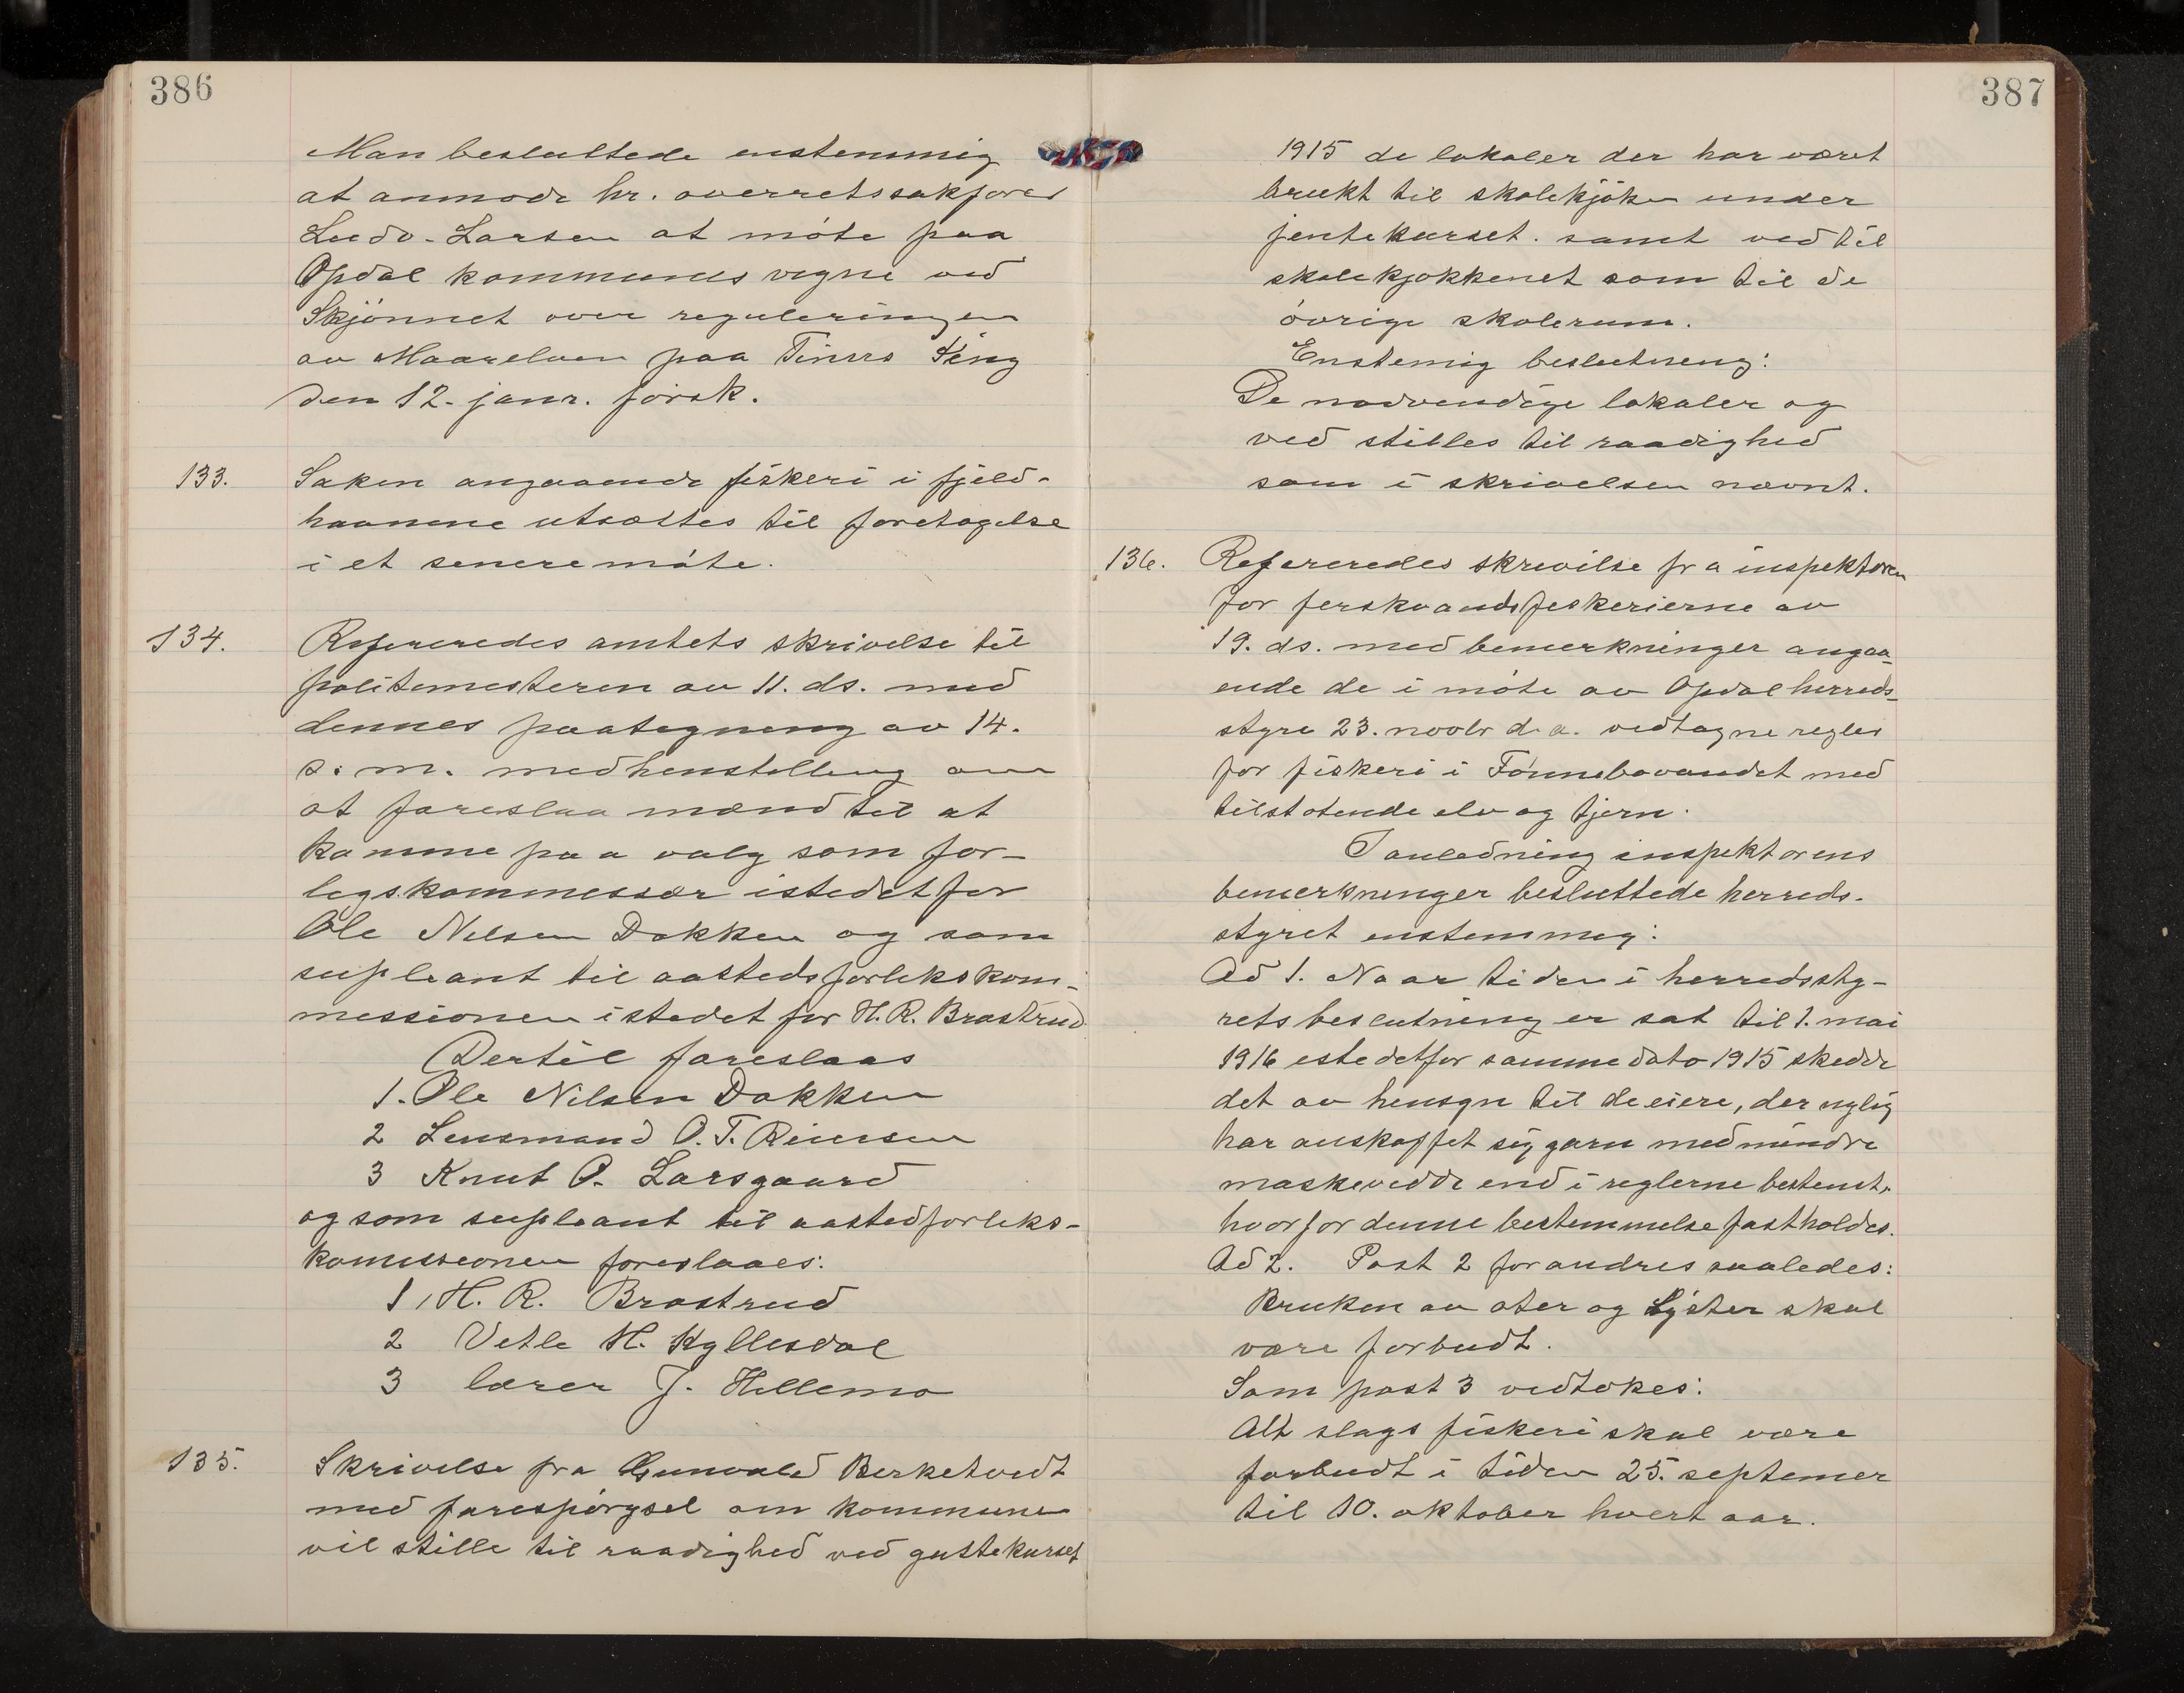 386
Man besluttede enstemmig
at anmode hr. overretssakfører
Ludv. Larsen at møte paa
Opdal kommunes vegne ved
Skjønnet over reguleringen
av Maarelven paa Tinns Ting
den 12. janr. førsk.
133. Saken angaaende fiskeri i fjeld-
havnene utsættes til foretagelse
i et senere møte.
134. Refereredes amtets skrivelse til
politimesteren av 11. ds. med
dennes paategning av 14.
s. m. med henstilling om
at foreslaa mænd til at
komme paa valg som for-
legskommessær istedetfor
Ole Nilsen Dokken og som
supleant til aastedsforlikskom-
messionen istedet for H. R. Brostrud
Dertil foreslaas
1. Ole Nilsen Dokken
2 Lensmand O. T. Riersen
3 Knut O. Larsgaard
og som supleant til aastedforliks-
komissionen foreslaaes:
1, H. R. Brostrud
2 Vetle H. Hyllesdal
3 lærer J. Hellemo
135. Skrivelse fra Gunvald Berketvedt
med forespørgsel om kommunen
vil stille til raadighed ved guttekurset
387
1915 de lokaler der har været
brukt til skolekjøken under
jentekurset. samt ved til
skolekjøkkenet som til de
øvrige skolerum.
Enstemig beslutning:
De nødvendige lokaler og
ved stilles til raadighed
som i skrivelsen nævnt.
136. Refereredes skrivilse fra inspektøren
for ferskvandsfiskerierne av
19. ds. med bemerkninger angaa-
ende de i møte av Opdal herreds-
styre 23. novbr d. a. vedtagne regler
for fiskeri i Fønnebøvandet med
tilstøtende elv og tjern.
I anledning inspektørens
bemerkninger besluttede herreds-
styret enstemmig:
Ad 1. Naar tiden i herredssty-
rets beslutning er sat til 1. mai
1916 istedetfor samme dato 1915 skedde
det av hensyn til de eiere, der nylig
har anskaffet sig garn med mindre
maskevidde end i reglerne bestemt,
hvorfor denne bestemmelse fastholdes.
Ad 2. Post 2 forandres saaledes:
Bruken av oter og Lyster skal
være forbudt.
Som post 3 vedtokes:
Alt slags fiskeri skal være
forbudt i tiden 25. septemer
til 10. oktober hvert aar.